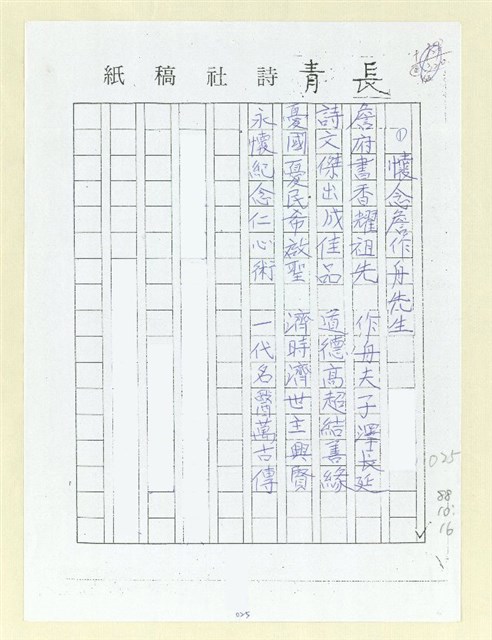 長青詩社稿紙
①懷念詹作舟先生
詹府書香耀祖先 作舟夫子澤長延
詩文傑出成佳品 道德高超結善緣
憂國憂民希啟聖 濟時濟世主興賢
永懷紀念仁心術 一代名醫萬古傳
025
88
10:
16
025